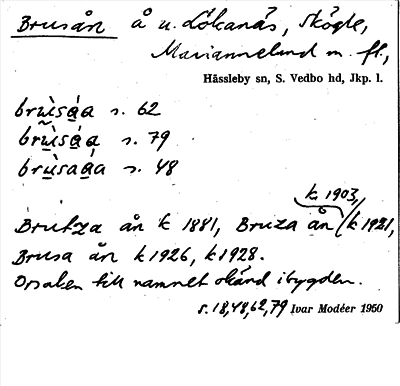 Brusån å u. Lökanäs, Skögle,
Mariannelund m. fl.,
Hässleby sn, S. Vedbo hd, Jkp. l.
brùsá̱a s. 62
brùsá̱a s. 79
brùsa̱a s. 48
k. 1903,
Brutza ån k 1881, Bruza ån (k 1921,
Brusa ån k 1926, k 1928.
Orsaken till namnet okänd i bygden.
s. 18, 48, 62, 79 Ivar Modéer 1950